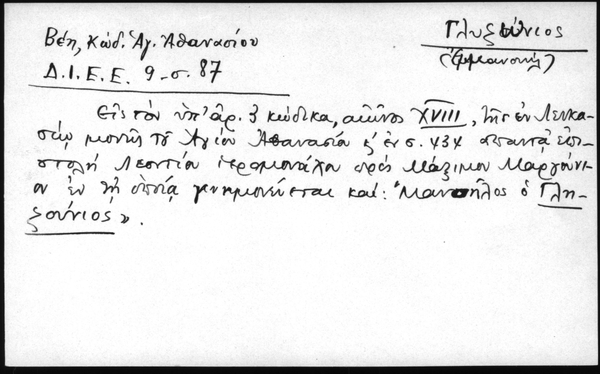 Βέη, Κώδ. Ἁγ. Ἀθανασίου
Γλυξούνιος
(Ἐμμανουήλ)
Δ.Ι.Ε.Ε. 9 - σ. 87
Εἰς τὸν ὑπ' ἀρ. 3 κώδικα, αἰῶνος XVIII, τῆς ἐν Λευκα-
σίῳ μονῆς τοῦ Ἁγίου Ἀθανασίου ἐν σ. 434 ἀπαντᾷ ἐπι-
στολὴ Λεοντίου ἱερομονάχου πρὸς Μάξιμον Μαργούνι-
ον ἐν τῇ ὁποίᾳ μνημονεύεται καί: "Μανουῆλος ὁ Γλη-
ξούνιος".